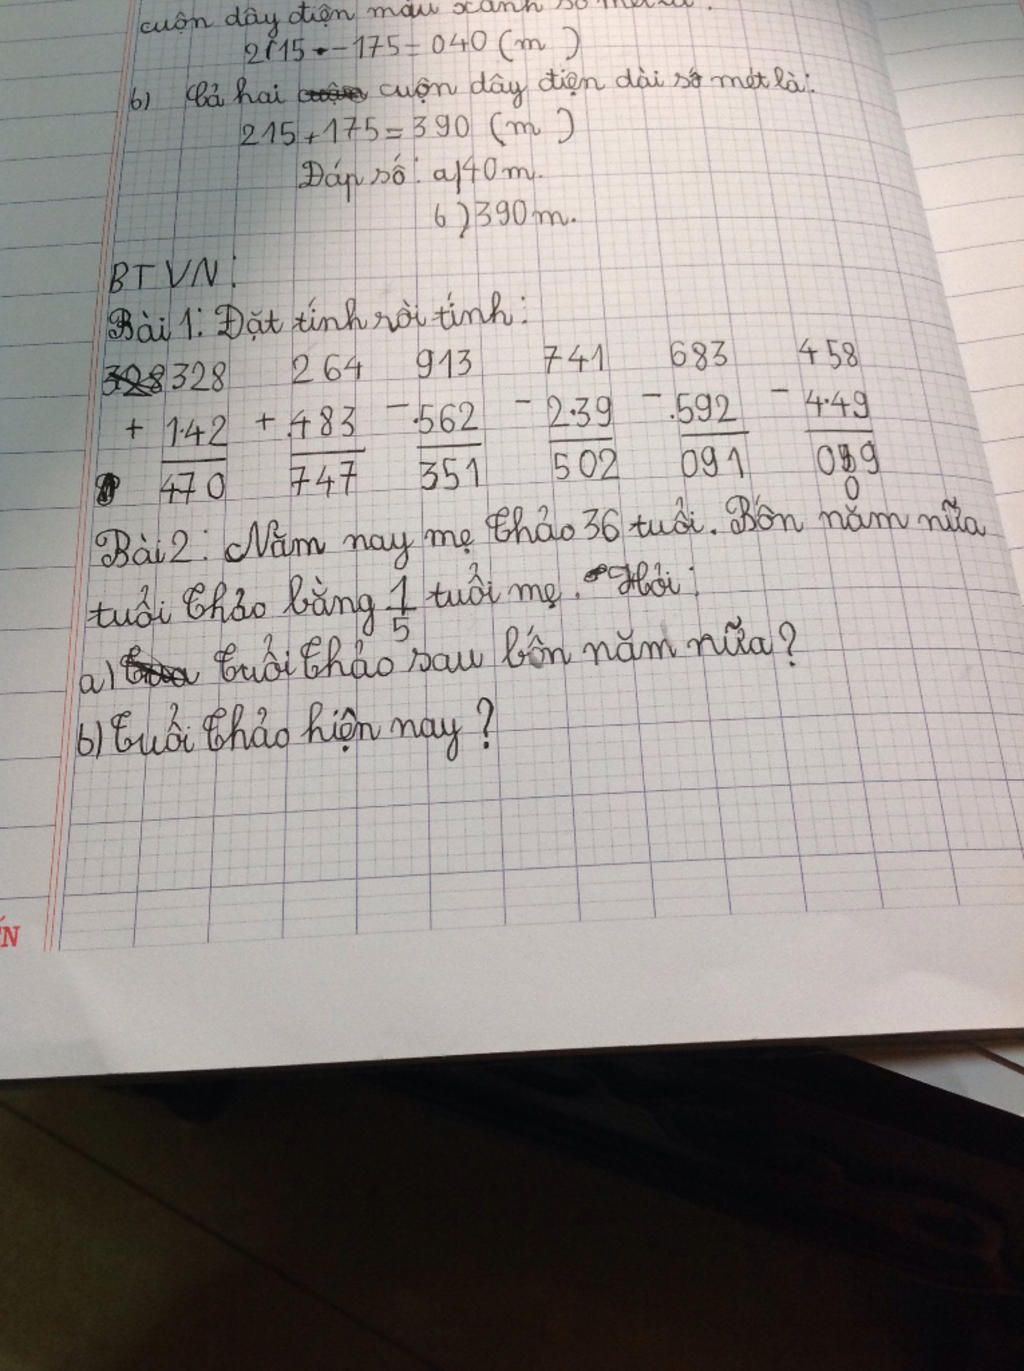 cuộn dây điện màu xanh số mét là:
215 - 175 = 040 (m)
b) Cả hai cuộn dây điện dài số mét là:
215 + 175 = 390 (m)
Đáp số: a) 40 m.
b) 390 m.
BTVN:
Bài 1: Đặt tính rồi tính:
328 264 913 741 683 458
+ 142 + 483 - 562 - 239 - 592 - 449
470 747 351 502 091 009
Bài 2: Năm nay mẹ Thảo 36 tuổi. Bốn năm nữa
tuổi Thảo bằng 1/5 tuổi mẹ. Hỏi:
a) Tuổi Thảo sau bốn năm nữa?
b) Tuổi Thảo hiện nay?
ẾN